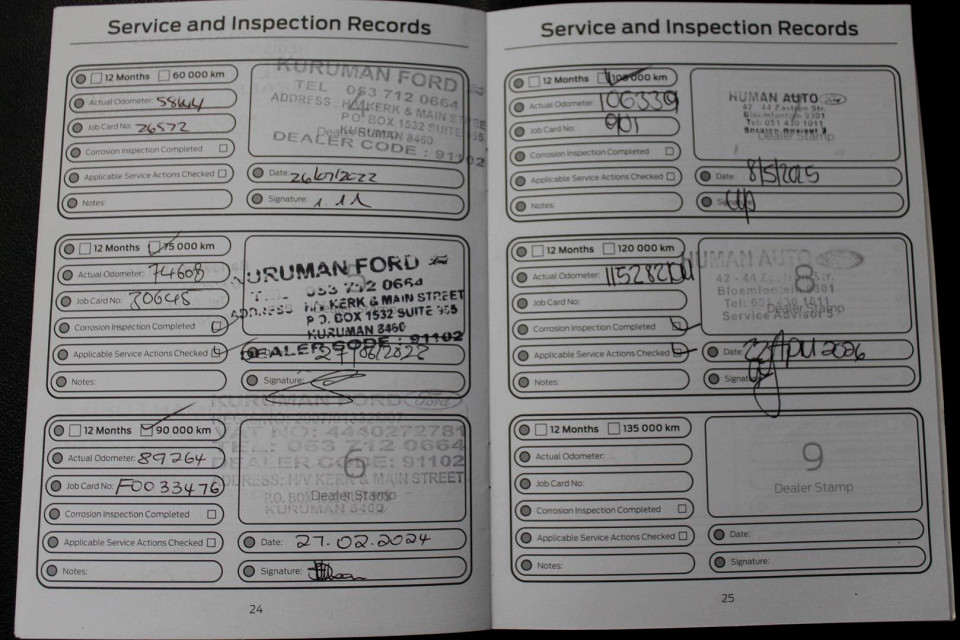 Service and Inspection Records
12 Months 60 000 km
Actual Odometer: 58644
Job Card No: 26572
Corrosion Inspection Completed
Applicable Service Actions Checked
Notes:
KURUMAN FORD
TEL 053 712 0664
ADDRESS H/V KERK & MAIN STREET
P O BOX 1532 SUITE 355
KURUMAN 8460
DEALER CODE : 91102
Date: 26/07/2022
Signature:
12 Months 75 000 km
Actual Odometer: 74608
Job Card No: 30645
Corrosion Inspection Completed
Applicable Service Actions Checked
Notes:
KURUMAN FORD
TEL 053 712 0664
ADDRESS H/V KERK & MAIN STREET
P.O. BOX 1532 SUITE 355
KURUMAN 8460
DEALER CODE : 91102
Date:
Signature:
12 Months 90 000 km
Actual Odometer: 89264
Job Card No: F0033476
Corrosion Inspection Completed
Applicable Service Actions Checked
Notes:
KURUMAN FORD Ford
VAT NO: 4440272781
TEL: 053 712 0664
DEALER CODE: 91102
ADDRESS: H/V KERK & MAIN STREET
6
Dealer Stamp
KURUMAN 8460
Date: 27.02.2024
Signature:
24
Service and Inspection Records
12 Months 105 000 km
Actual Odometer: 106339
Job Card No: 901
Corrosion Inspection Completed
Applicable Service Actions Checked
Notes:
HUMAN AUTO Ford
42 - 44 Zastron Str.
Bloemfontein 9301
Tel: 051 430 1011
Service Advisor
Dealer Stamp
Date: 8/5/2025
Signature:
12 Months 120 000 km
Actual Odometer: 115282
Job Card No:
Corrosion Inspection Completed
Applicable Service Actions Checked
Notes:
HUMAN AUTO
42 - 44 Zastron Str.
Bloemfontein 9301
Tel: 051 430 1011
Service Advisor 5
8
Dealer Stamp
Date: 22 Apr 2026
Signature:
12 Months 135 000 km
Actual Odometer:
Job Card No:
Corrosion Inspection Completed
Applicable Service Actions Checked
Notes:
9
Dealer Stamp
Date:
Signature:
25